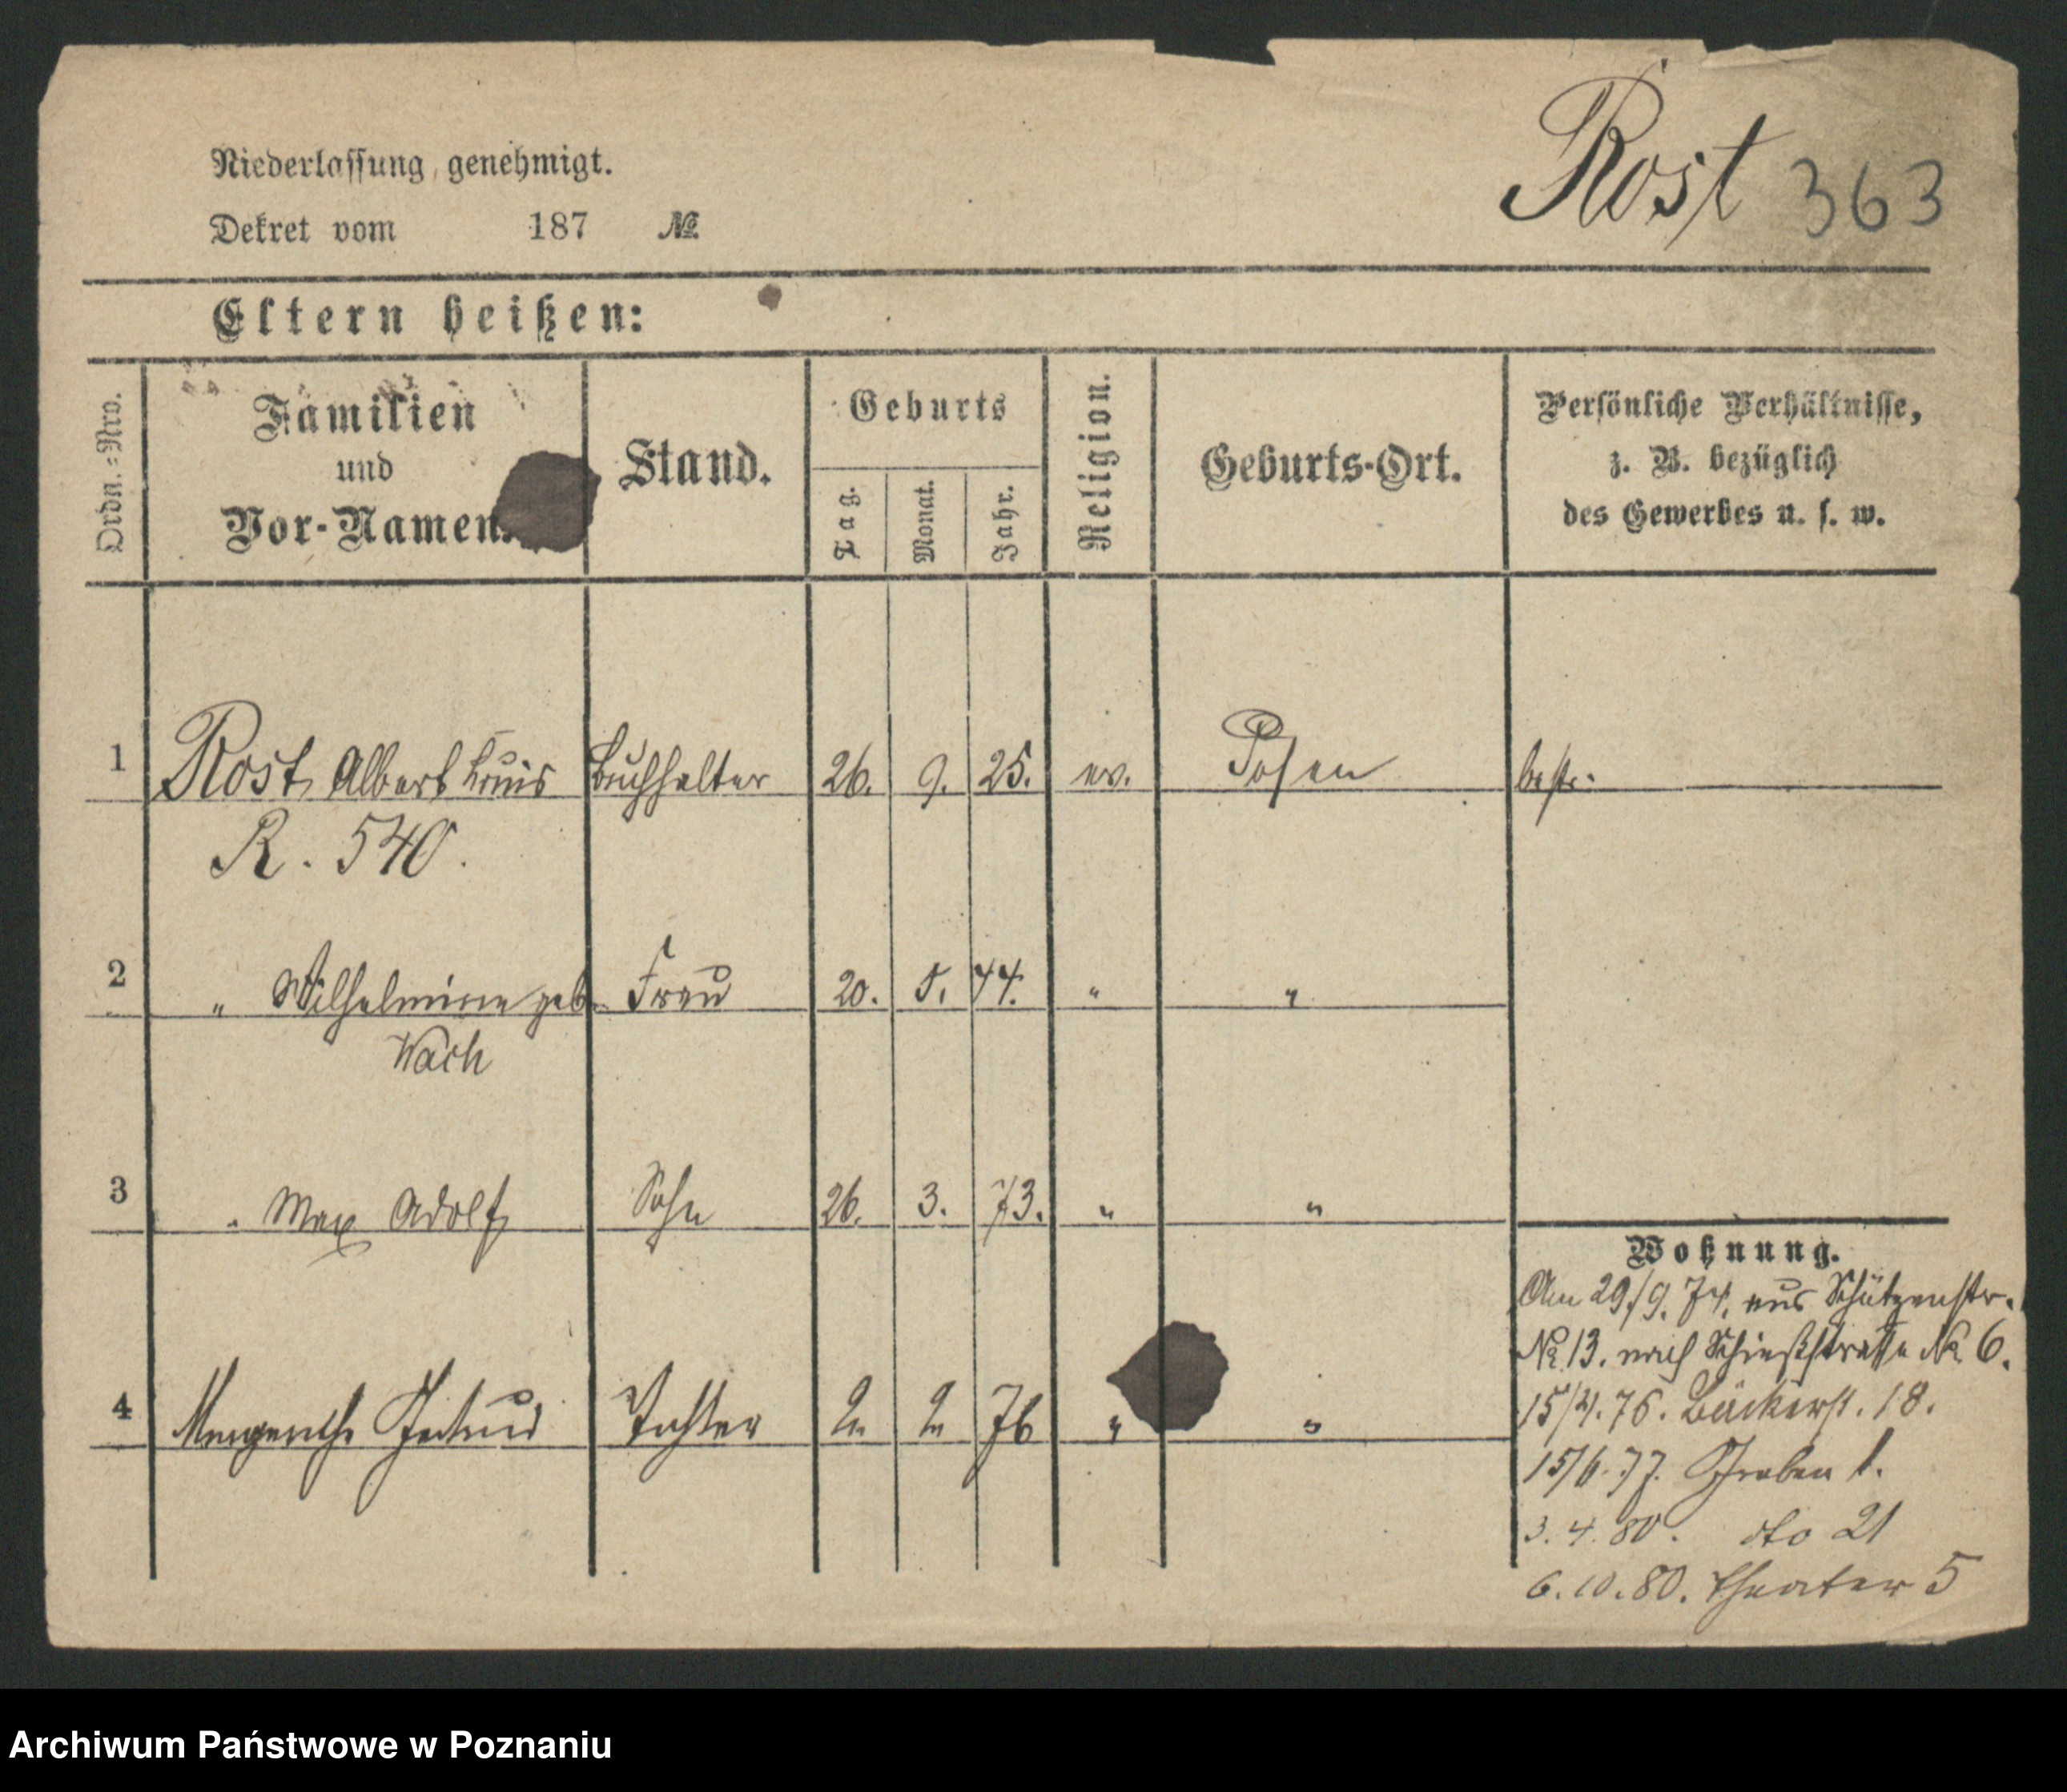 Rost 363
Niederlassung genehmigt.
Dekret vom 187 №
Eltern heißen:
Ordn.=Nro.
Familien
und
Vor-Namen.
Stand.
Geburts
Tag.
Monat.
Jahr.
Religion.
Geburts-Ort.
Persönliche Verhältnisse,
z. B. bezüglich
des Gewerbes u. s. w.
1 Rost Albert Louis Buchhalter 26. 9. 25. ev. Posen bestr.
R. 540.
2 " Wilhelmine geb. Frau 20. 5. 44. " "
Wach
3 " Max Adolf Sohn 26. 3. 73. " "
4 Margarethe Gertrud Tochter 2. 2. 76 " "
Wohnung.
Am 29./9. 74. aus Schützenstr.
№ 13. nach Schießstrasse № 6.
15/4. 76. Bäckerst. 18.
15/6. 77. Graben 1.
3. 4. 80. dto 21
6. 10. 80. Theater 5
Archiwum Państwowe w Poznaniu